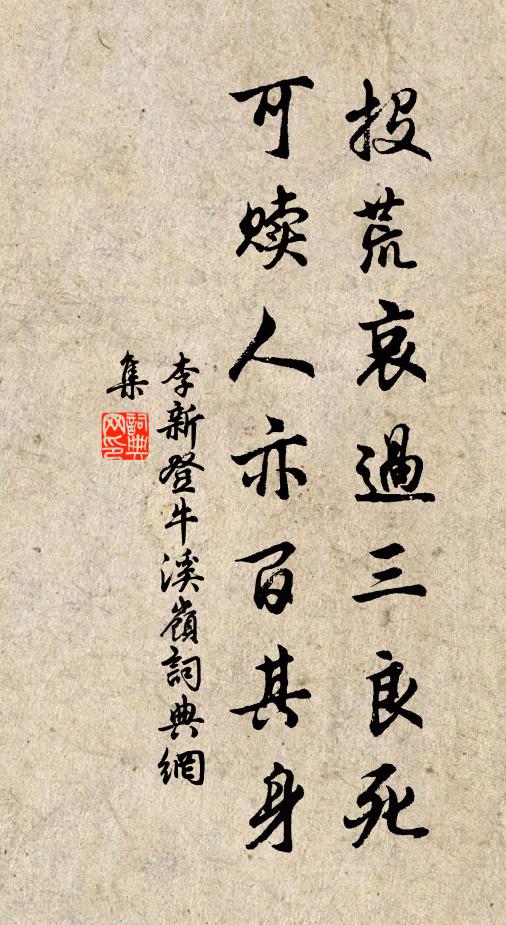 投荒哀過三良死
可赎人亦百其身
李新登牛溪嶺詞典網
集
詞典網印